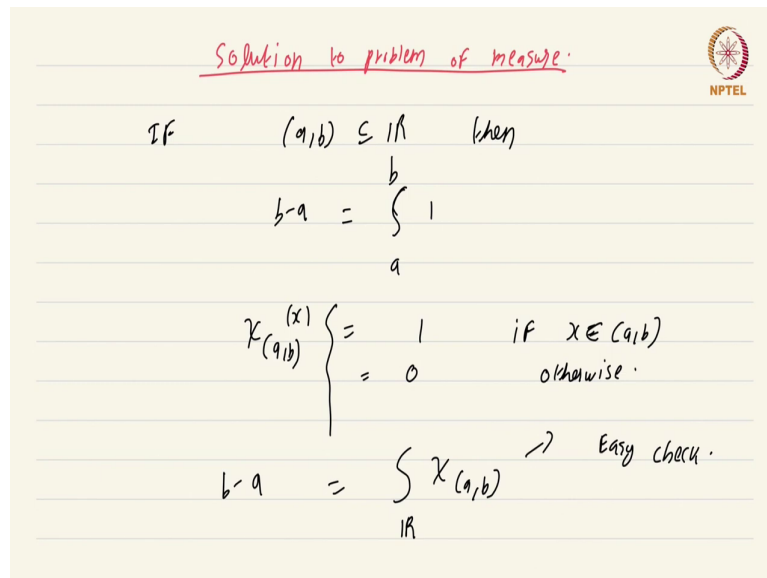 Solution to problem of measure.
NPTEL
IF (a,b) ⊆ ℝ then
b-a = ∫_a^b 1
χ_(a,b)(x) { = 1 if x ∈ (a,b)
= 0 otherwise.
b-a = ∫_ℝ χ_(a,b) → Easy check.